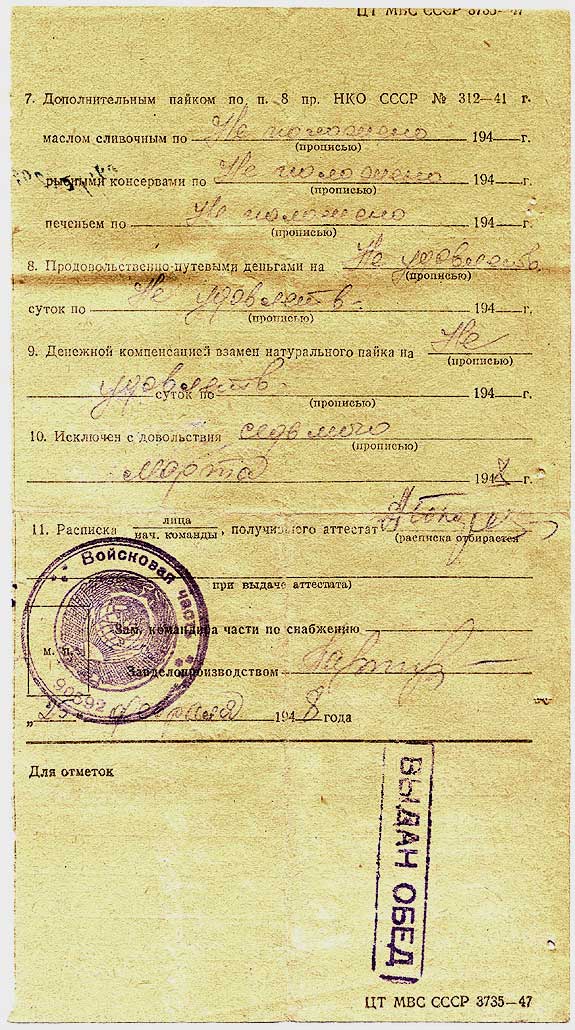 ЦТ МВС СССР 3735—47
7. Дополнительным пайком по п. 8 пр. НКО СССР № 312—41 г.
маслом сливочным по Не положено 194 г.
(прописью)
рыбными консервами по Не положено 194 г.
(прописью)
печеньем по Не положено 194 г.
(прописью)
8. Продовольственно-путевыми деньгами на Не удовлетв.
(прописью)
суток по Не удовлетв. 194 г.
(прописью)
9. Денежной компенсацией взамен натурального пайка на Не
(прописью)
удовлетв. суток по 194 г.
(прописью)
10. Исключен с довольствия седьмого
(прописью)
марта 1948 г.
11. Расписка лица
нач. команды, получившего аттестат
(расписка отбирается
при выдаче аттестата)
Войсковая часть
Зам. командира части по снабжению
м. п.
Завделопроизводством
90592
„25 февраля 1948 года
Для отметок
ВЫДАН ОБЕД
ЦТ МВС СССР 3735—47